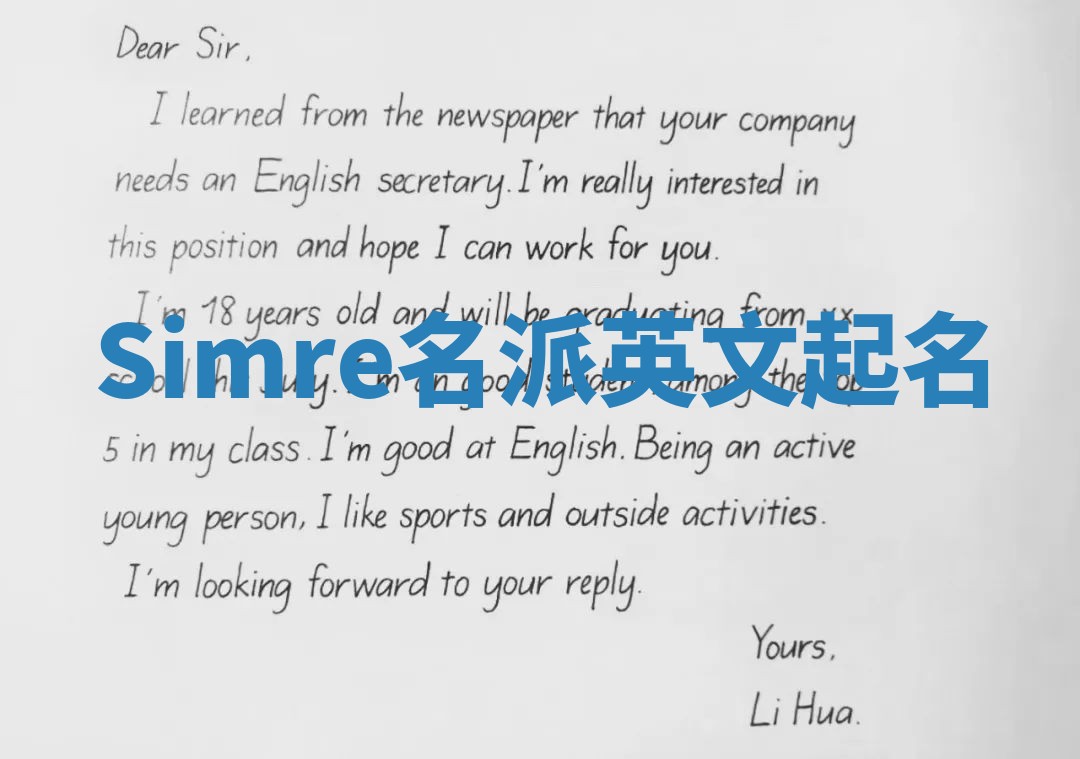 Dear Sir,
I learned from the newspaper that your company
needs an English secretary. I'm really interested in
this position and hope I can work for you.
I'm 18 years old and will be graduating from xx
Simre名派英文起名
school this July. I'm an good student among the top
5 in my class. I'm good at English. Being an active
young person, I like sports and outside activities.
I'm looking forward to your reply.
Yours,
Li Hua.